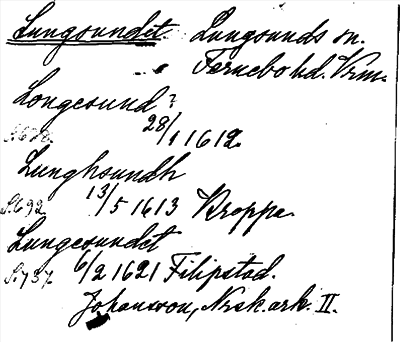 Lungsundet Lungsunds sn.
Fernebo hd. Vrm.
Longesund?
S.678 28/1 1612.
Lunghsundh
S.692 13/5 1613 Kroppa.
Lungesundet
S.737 6/2 1621 Filipstad.
Johansson, Nrsk. ark. II.